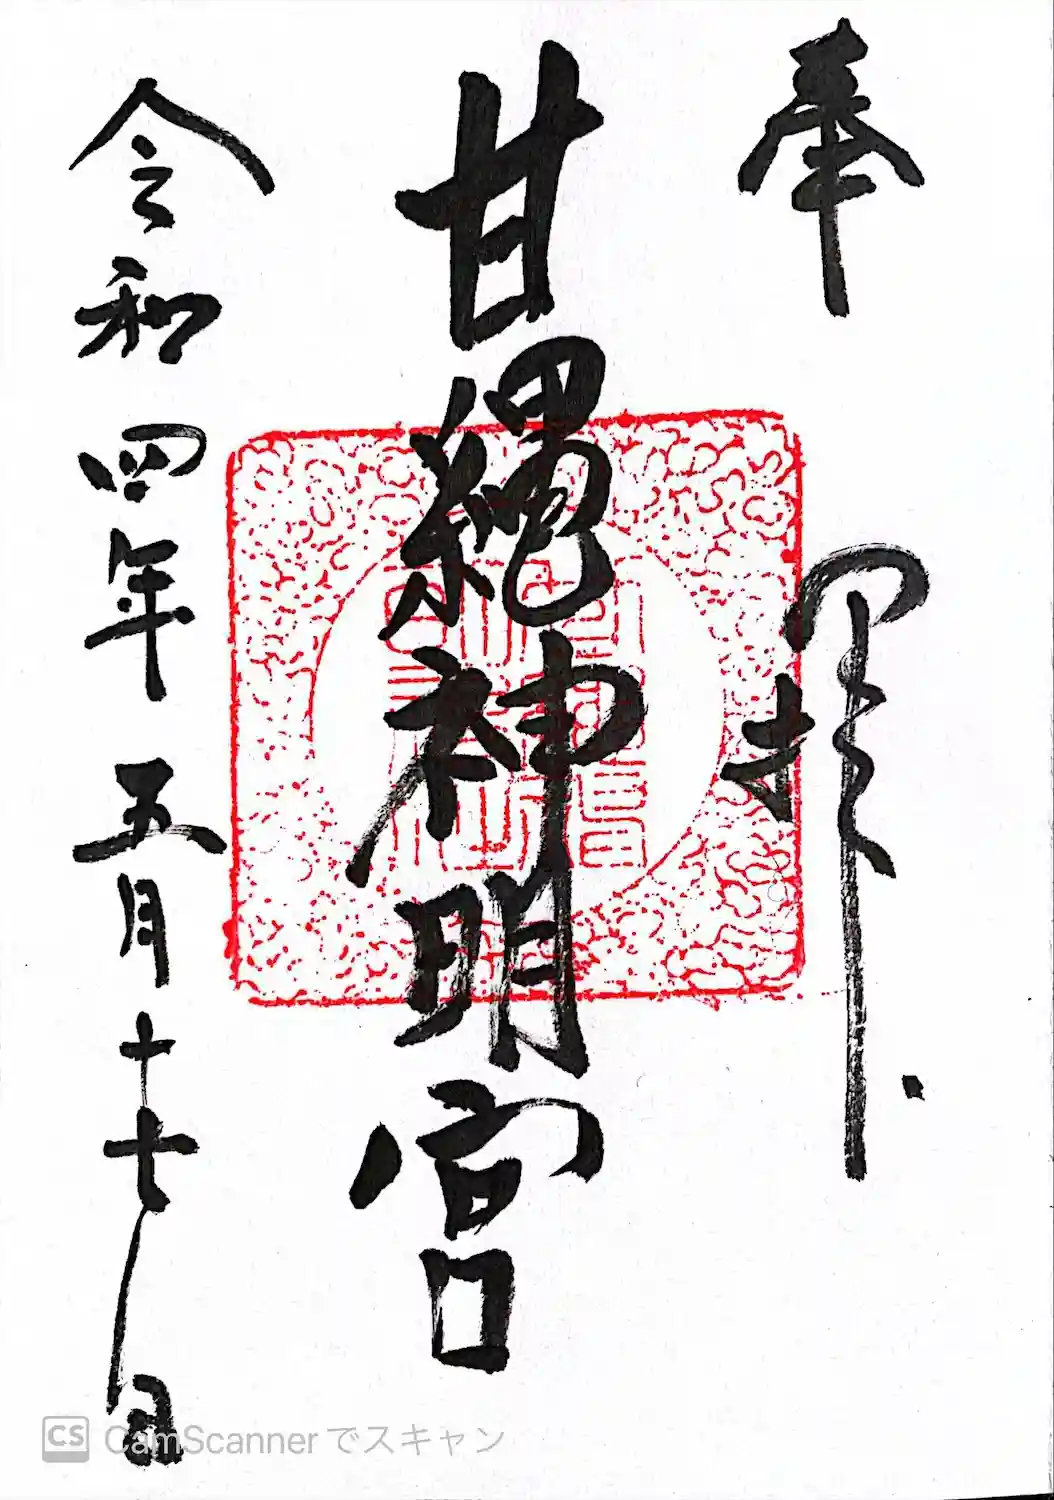 奉拝
甘縄神明宮
令和四年五月十七日
CS CamScannerでスキャン